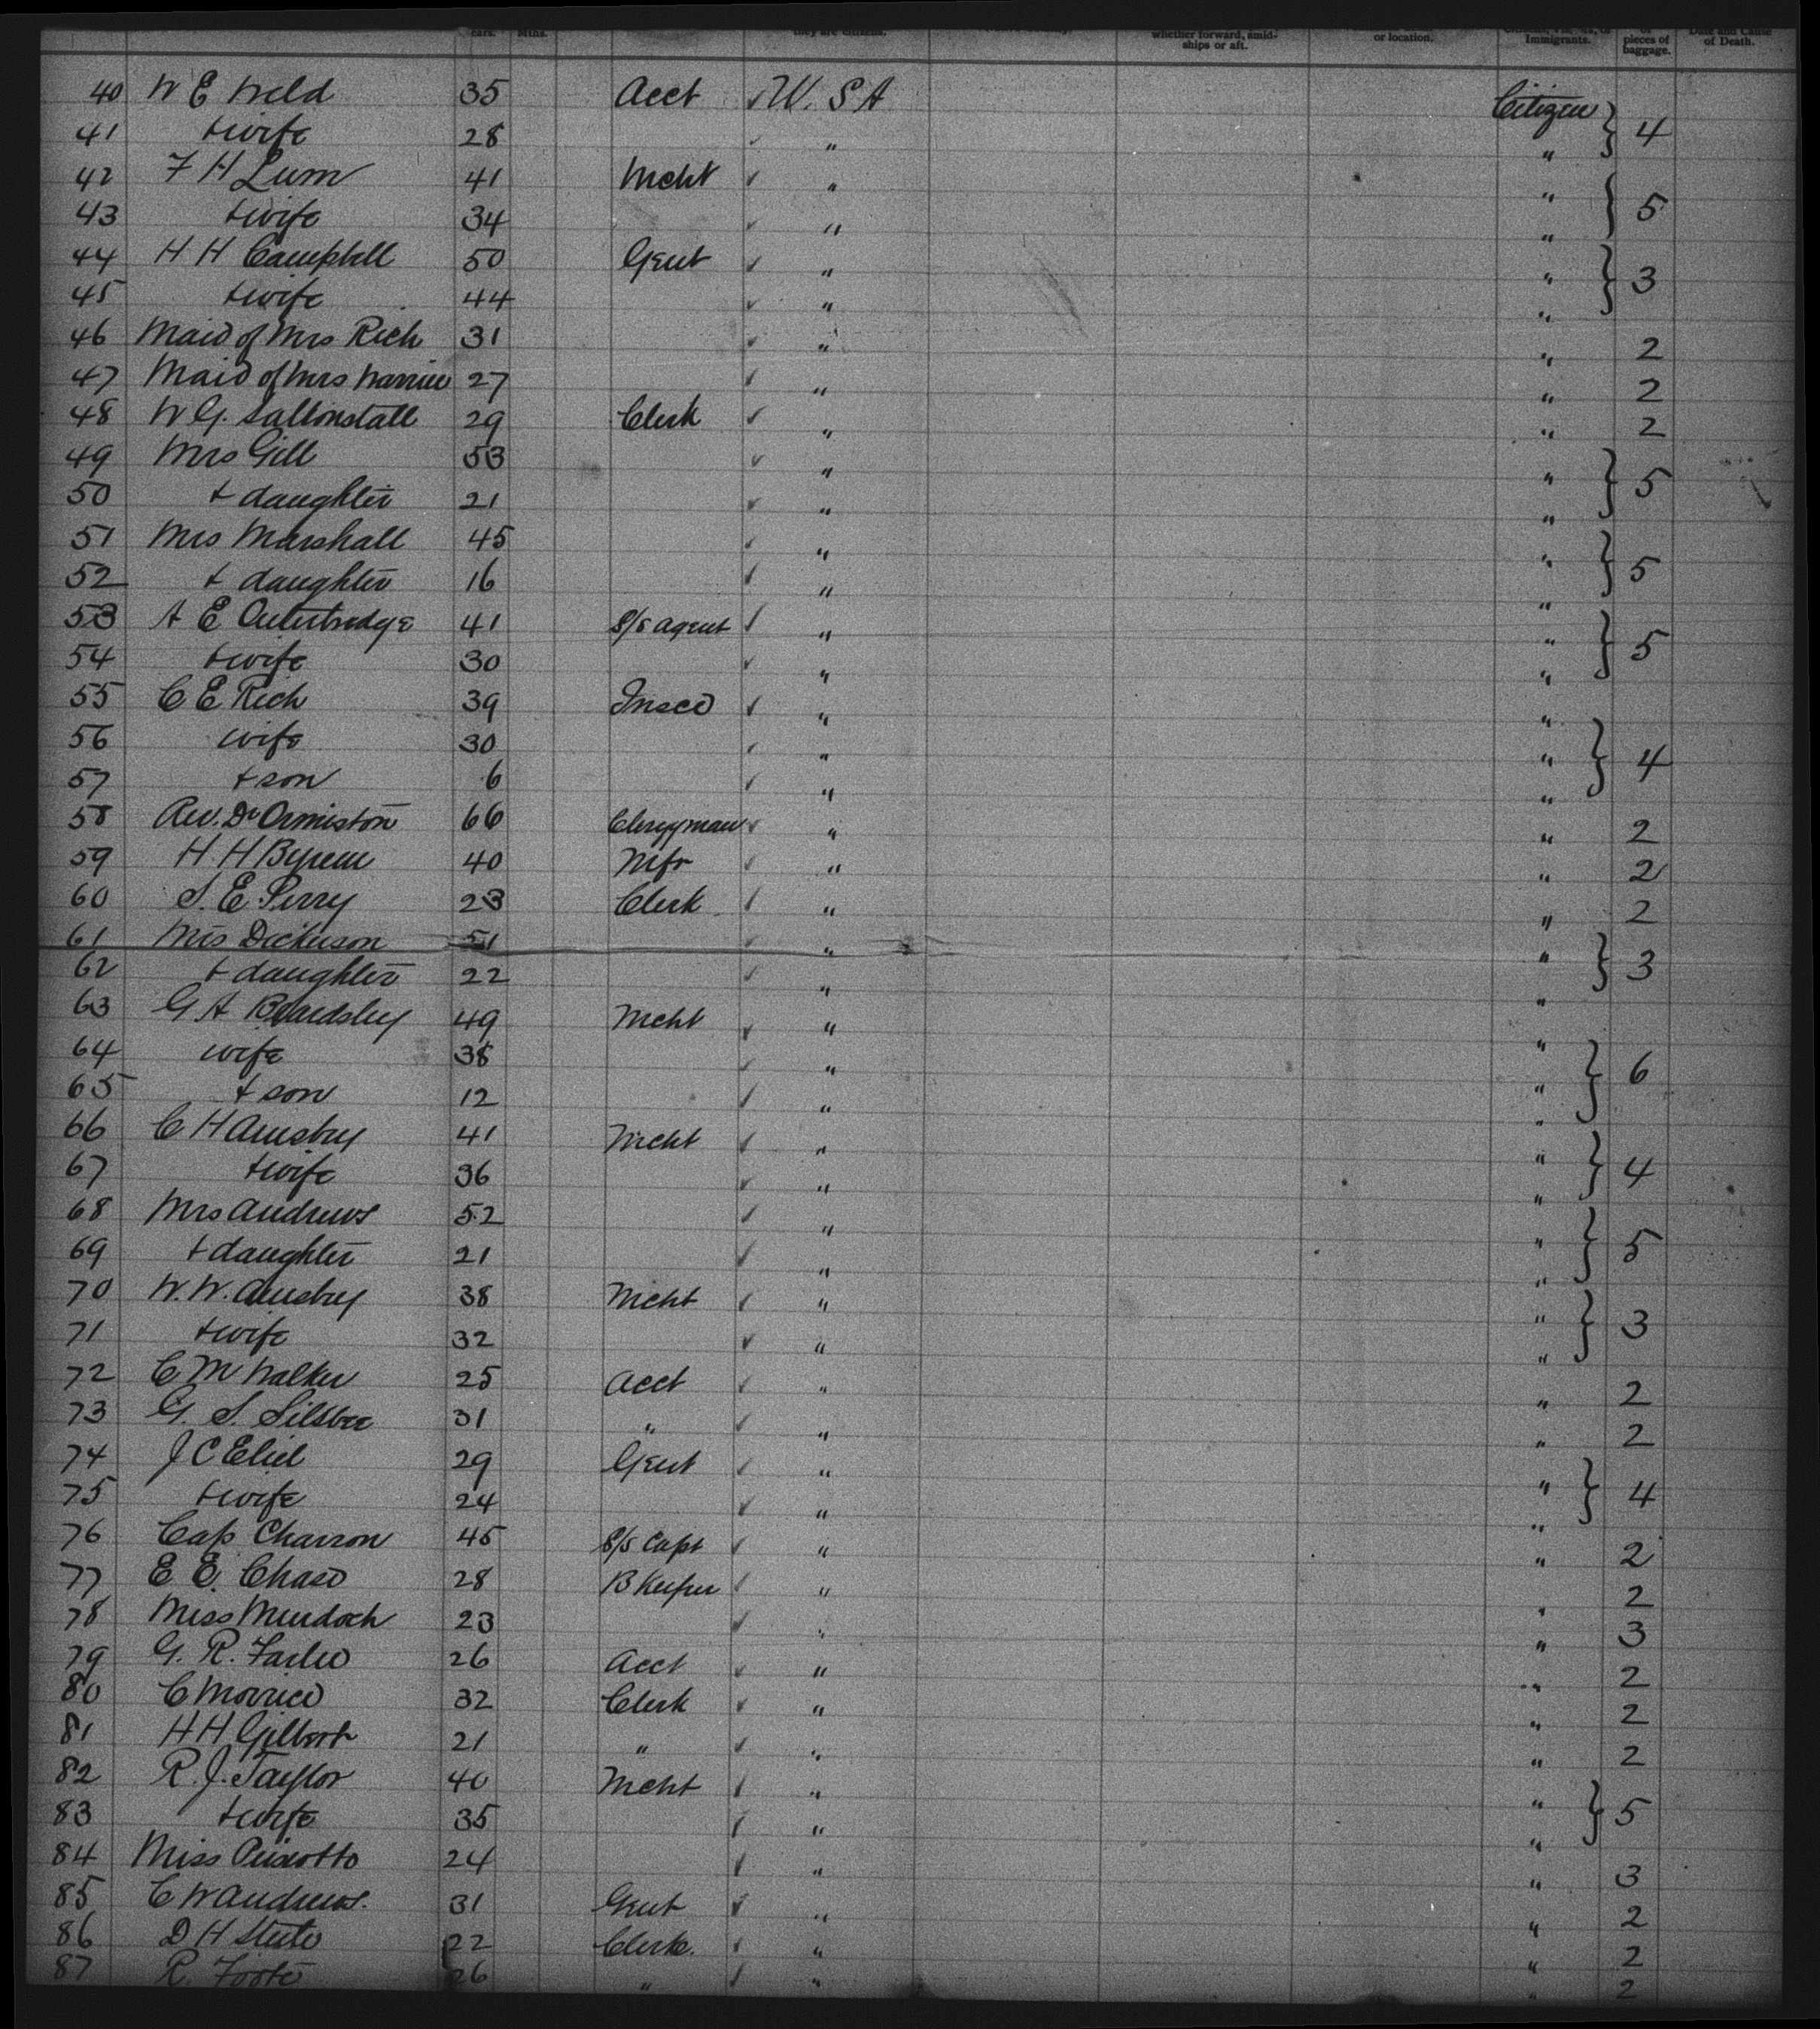 ears. Mths. they are citizens. whether forward, amid- or location. Immigrants. pieces of Date and Cause
ships or aft. baggage. of Death.
40 W E Weld 35 Acct ✓ U. S A Citizen } 4
41 + wife 28 ✓ " "
42 F H Lum 41 Mcht ✓ " " } 5
43 + wife 34 ✓ " "
44 H H Campbell 50 Gent ✓ " " } 3
45 + wife 44 ✓ " "
46 Maid of Mrs Rich 31 ✓ " " 2
47 Maid of Mrs 27 ✓ " " 2
48 W G. Saltonstall 29 Clerk ✓ " " 2
49 Mrs Gill 53 ✓ " " } 5
50 + daughter 21 ✓ " "
51 Mrs Marshall 45 ✓ " " } 5
52 + daughter 16 ✓ " "
53 A E Outerbridge 41 S/S agent ✓ " " } 5
54 + wife 30 ✓ " "
55 C E Rich 39 ✓ " " } 4
56 wife 30 ✓ " "
57 + son 6 ✓ " "
58 Rev. Dr Ormiston 66 Clergyman ✓ " " 2
59 H H 40 Mfr ✓ " " 2
60 S. E. Perry 23 Clerk ✓ " " 2
61 Mrs Dickerson 51 ✓ " " } 3
62 + daughter 22 ✓ " "
63 G A Beardsley 49 Mcht ✓ " " } 6
64 wife 38 ✓ " "
65 + son 12 ✓ " "
66 C H 41 Mcht ✓ " " } 4
67 + wife 36 ✓ " "
68 Mrs Andrews 52 ✓ " " } 5
69 + daughter 21 ✓ " "
70 W. W. 38 Mcht ✓ " " } 3
71 + wife 32 ✓ " "
72 C M Walker 25 Acct ✓ " " 2
73 G. S. Silsbee 31 " ✓ " " 2
74 J C Eliel 29 Gent ✓ " " } 4
75 + wife 24 ✓ " "
76 Cap 45 S/S Capt ✓ " " 2
77 E. E. Chase 28 B Keeper ✓ " " 2
78 Miss Murdoch 23 ✓ " " 3
79 G. R. 26 Acct ✓ " " 2
80 C Morrice 32 Clerk ✓ " " 2
81 H H Gilbert 21 " ✓ " " 2
82 R. J. Taylor 40 Mcht ✓ " " } 5
83 + wife 35 ✓ " "
84 Miss 24 ✓ " " 3
85 C W Andrews. 31 Gent ✓ " " 2
86 D H 22 Clerk. ✓ " " 2
87 R. Foote 26 " ✓ " " 2